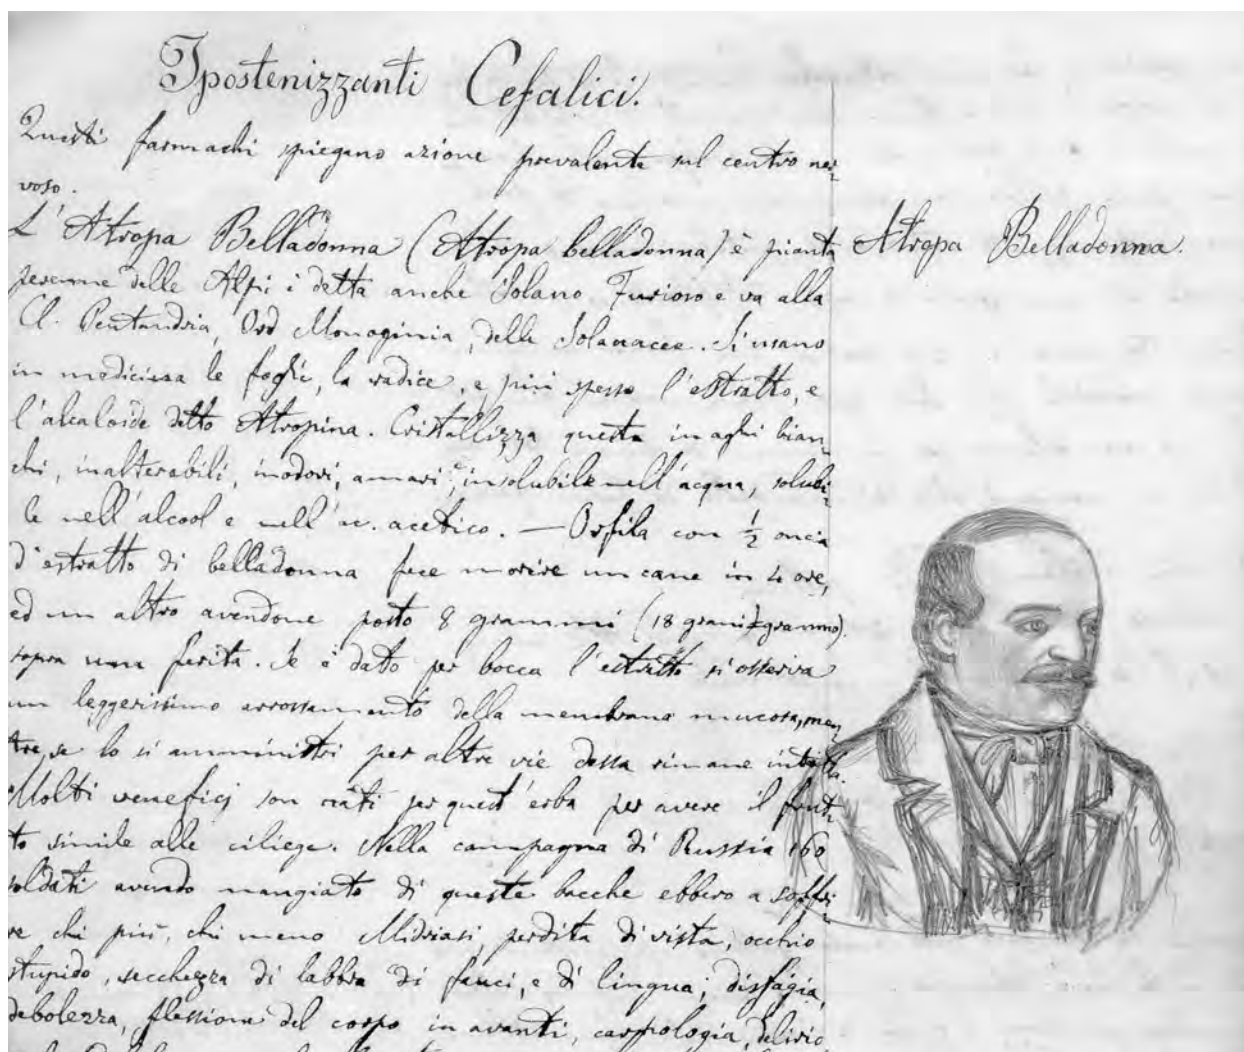 Ipostenizzanti Cefalici.
Questi farmachi spiegano azione prevalente sul centro ner-
voso.
L'Atropa Belladonna (Atropa belladonna) è pianta
Atropa Belladonna.
perenne delle Alpi: è detta anche Solano Furioso e va alla
Cl. Pentandria, Ord Monoginia, delle Solanacee. Si usano
in medicina le foglie, la radice, e più spesso l'estratto, e
l'alcaloide detto Atropina. Cristallizza questa in aghi bian-
chi, inalterabili, inodori, amari, insolubile nell'acqua, solubi-
le nell'alcool e nell'ac. acetico. — Orfila con ½ oncia
d'estratto di belladonna fece morire un cane in 4 ore,
ed un altro avendone posto 8 grammi (18 grani=grammo).
sopra una ferita. Se è dato per bocca l'estratto si osserva
un leggerissimo arrossamento della membrana mucosa, men-
tre, se lo si amministri per altre vie dessa rimane intatta.
Molti venefici son nati per quest'erba per avere il frut-
to simile alle ciliege. Nella campagna di Russia 160
soldati avendo mangiato di queste bacche ebbero a soffri-
re chi più, chi meno Midriasi, perdita di vista, occhio
stupido, secchezza di labbra di fauci, e di lingua; disfagia,
debolezza, flessione del corpo in avanti, carfologia, delirio